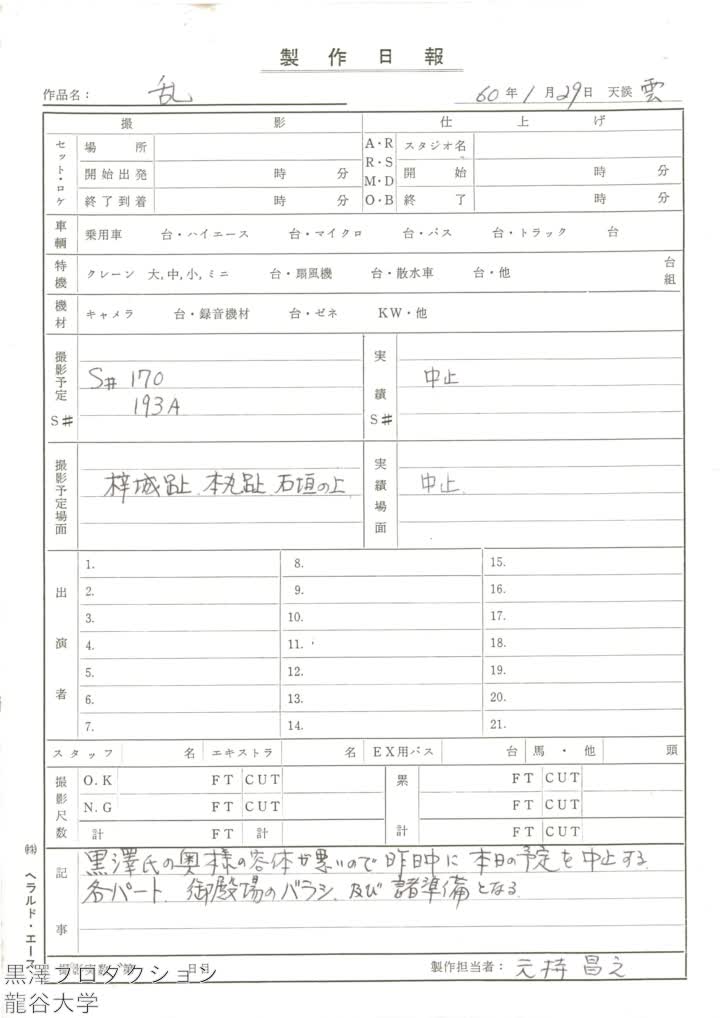 製作日報
作品名: 乱 60年1月29日 天候 雲
撮影 仕上げ
セット・ロケ 場所 A・R スタジオ名
開始出発 時 分 R・S M・D 開始 時 分
終了到着 時 分 O・B 終了 時 分
車輌 乗用車 台・ハイエース 台・マイクロ 台・バス 台・トラック 台
特機 クレーン 大,中,小,ミニ 台・扇風機 台・散水車 台・他 台組
機材 キャメラ 台・録音機材 台・ゼネ KW・他
撮影予定S# S# 170 実績S# 中止
193A
撮影予定場面 梓城趾、本丸趾 石垣の上 実績場面 中止
出演者
1. 8. 15.
2. 9. 16.
3. 10. 17.
4. 11. 18.
5. 12. 19.
6. 13. 20.
7. 14. 21.
スタッフ 名 エキストラ 名 EX用バス 台 馬・他 頭
撮影尺数 O.K FT CUT 累計 FT CUT
N.G FT CUT FT CUT
計 FT 計 FT CUT
記事 黒澤氏の奥様の容体が悪いので昨日中に本日の予定を中止する
各パート、御殿場のバラシ、及び諸準備となる
撮影実数 第 日目 製作担当者: 元持昌之
㈱ ヘラルド・エース
黒澤プロダクション
龍谷大学